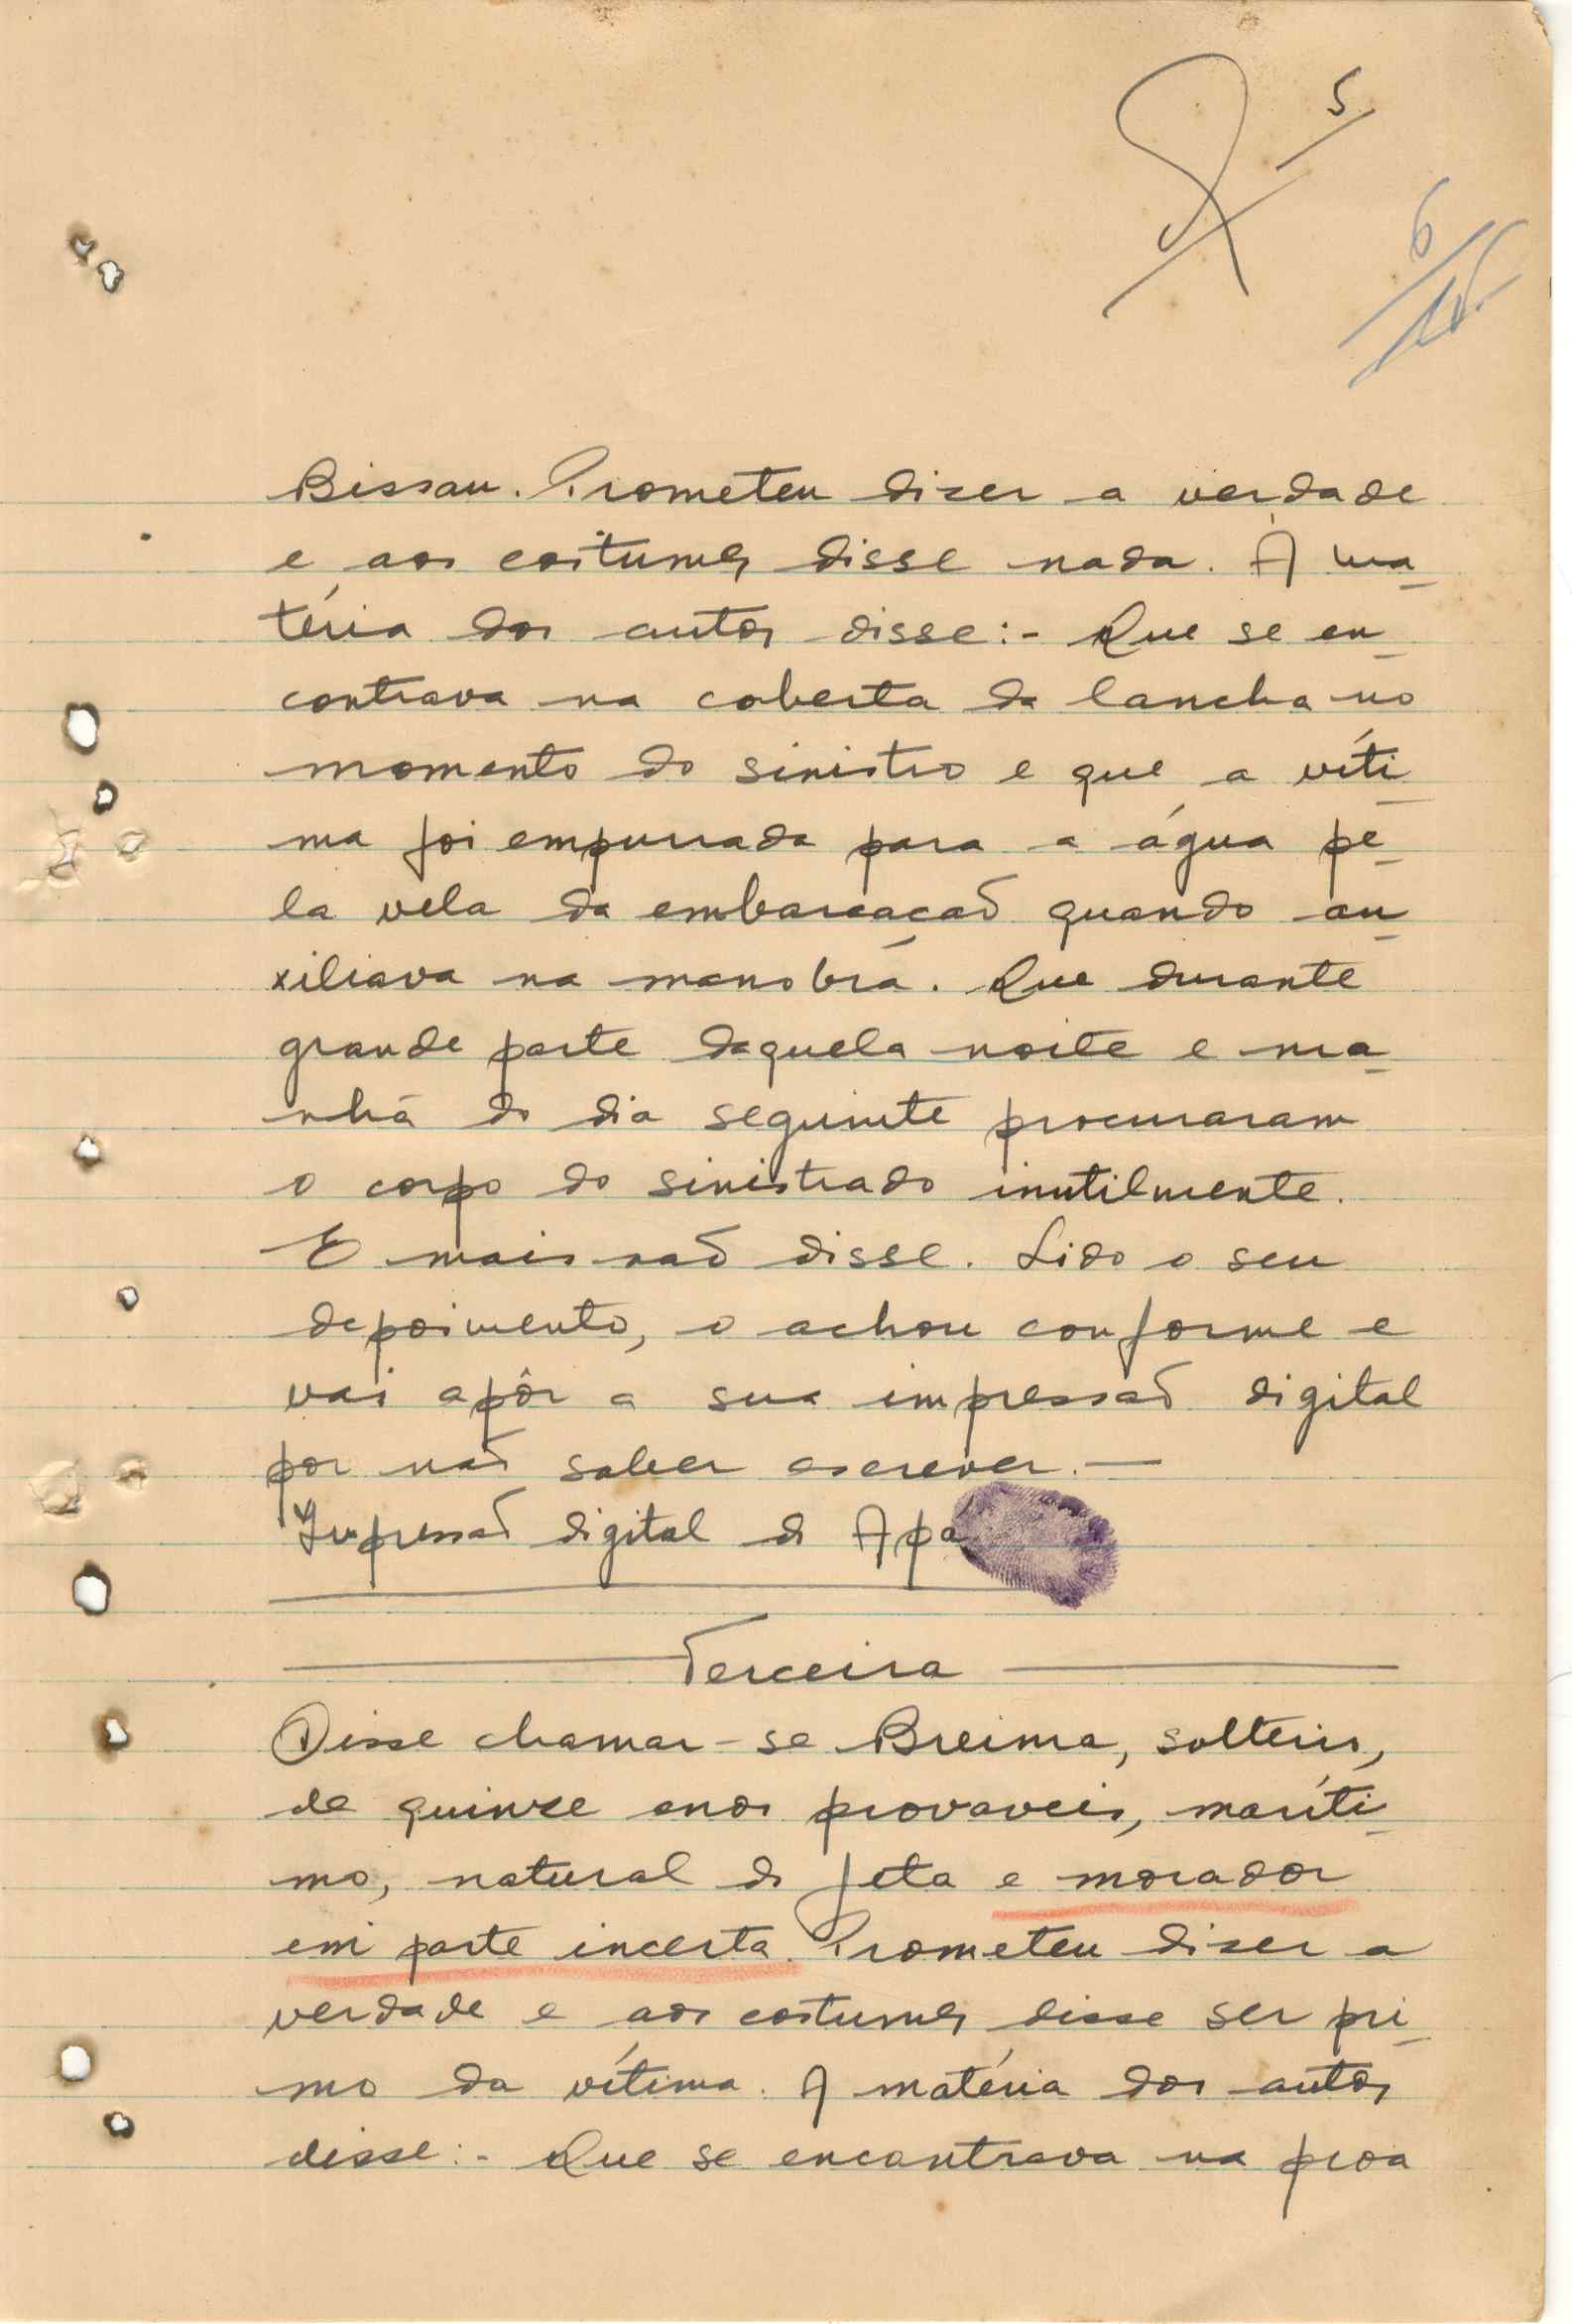 5
6
Bissau. Prometeu dizer a verdade
e aos costumes disse nada. À ma-
téria dos autos disse:- Que se en-
contrava na coberta da lancha no
momento do sinistro e que a víti-
ma foi empurrada para a água pe-
la vela da embarcação quando au-
xiliava na manobra. Que durante
grande parte daquela noite e ma-
nhã do dia seguinte procuraram
o corpo do sinistrado inutilmente.
E mais não disse. Lido o seu
depoimento, o achou conforme e
vai apôr a sua impressão digital
por não saber escrever.—
Impressão digital de Apá
— Terceira —
Disse chamar-se Breima, solteiro,
de quinze anos provaveis, maríti-
mo, natural de Jeta e morador
em parte incerta. Prometeu dizer a
verdade e aos costumes disse ser pri-
mo da vítima. A matéria dos autos
disse:- Que se encontrava na proa